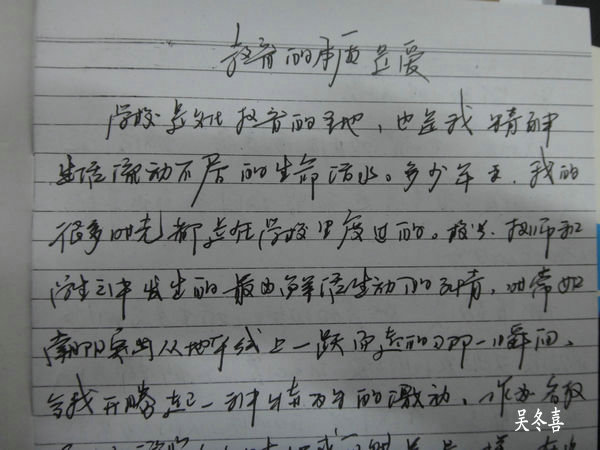 教育的本质是爱
学校是文化教育的圣地,也是我精神
生活流动不居的生命活水。多少年来,我的
很多时光都是在学校里度过的。校长、教师和
学生之中发生的最为鲜活生动的事情,时常如
朝阳突然从地平线上一跃而起的那一瞬间,
令我升腾起一种情不自的激动,作为
吴冬喜